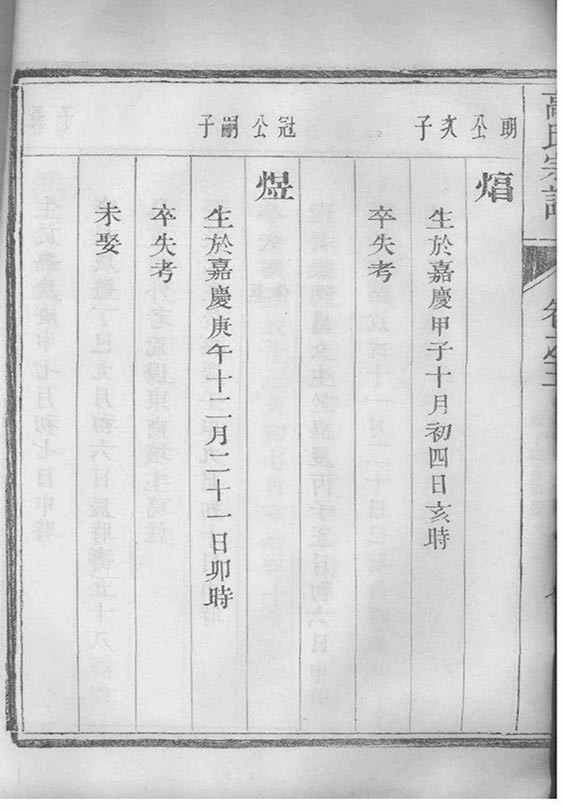 高氏宗譜
卷之三
朗公次子
熺
生於嘉慶甲子十月初四日亥時
卒失考
冠公嗣子
煜
生於嘉慶庚午十二月二十一日卯時
卒失考
未娶